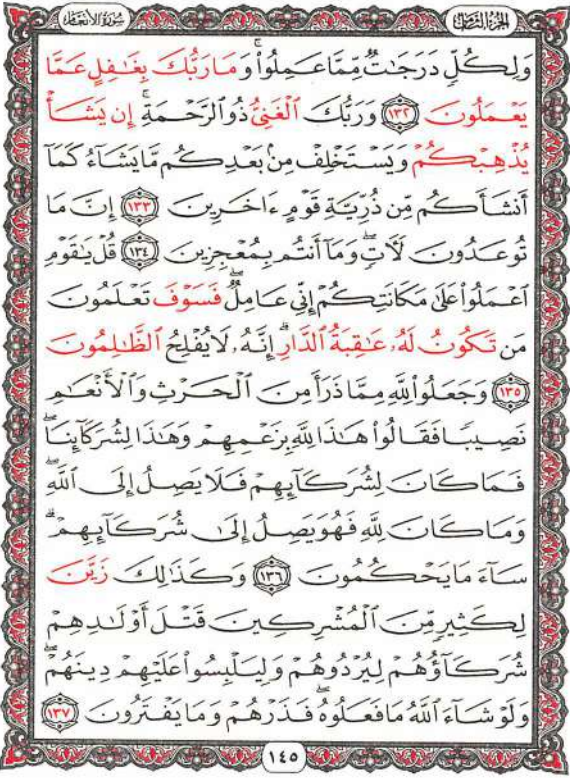 سُورَةُ الأَنْعَام الجُزْءُ الثَّامِن
وَلِكُلٍّ دَرَجَٰتٌ مِّمَّا عَمِلُوا۟ ۚ وَمَا رَبُّكَ بِغَٰفِلٍ عَمَّا
يَعْمَلُونَ ١٣٢ وَرَبُّكَ ٱلْغَنِىُّ ذُو ٱلرَّحْمَةِ ۚ إِن يَشَأْ
يُذْهِبْكُمْ وَيَسْتَخْلِفْ مِنۢ بَعْدِكُم مَّا يَشَآءُ كَمَآ
أَنشَأَكُم مِّن ذُرِّيَّةِ قَوْمٍ ءَاخَرِينَ ١٣٣ إِنَّ مَا
تُوعَدُونَ لَـَٔاتٍ ۖ وَمَآ أَنتُم بِمُعْجِزِينَ ١٣٤ قُلْ يَٰقَوْمِ
ٱعْمَلُوا۟ عَلَىٰ مَكَانَتِكُمْ إِنِّى عَامِلٌ ۖ فَسَوْفَ تَعْلَمُونَ
مَن تَكُونُ لَهُۥ عَٰقِبَةُ ٱلدَّارِ ۗ إِنَّهُۥ لَا يُفْلِحُ ٱلظَّٰلِمُونَ
١٣٥ وَجَعَلُوا۟ لِلَّهِ مِمَّا ذَرَأَ مِنَ ٱلْحَرْثِ وَٱلْأَنْعَٰمِ
نَصِيبًا فَقَالُوا۟ هَٰذَا لِلَّهِ بِزَعْمِهِمْ وَهَٰذَا لِشُرَكَآئِنَا ۖ
فَمَا كَانَ لِشُرَكَآئِهِمْ فَلَا يَصِلُ إِلَى ٱللَّهِ ۖ
وَمَا كَانَ لِلَّهِ فَهُوَ يَصِلُ إِلَىٰ شُرَكَآئِهِمْ ۗ
سَآءَ مَا يَحْكُمُونَ ١٣٦ وَكَذَٰلِكَ زَيَّنَ
لِكَثِيرٍ مِّنَ ٱلْمُشْرِكِينَ قَتْلَ أَوْلَٰدِهِمْ
شُرَكَآؤُهُمْ لِيُرْدُوهُمْ وَلِيَلْبِسُوا۟ عَلَيْهِمْ دِينَهُمْ ۖ
وَلَوْ شَآءَ ٱللَّهُ مَا فَعَلُوهُ ۖ فَذَرْهُمْ وَمَا يَفْتَرُونَ ١٣٧
١٤٥